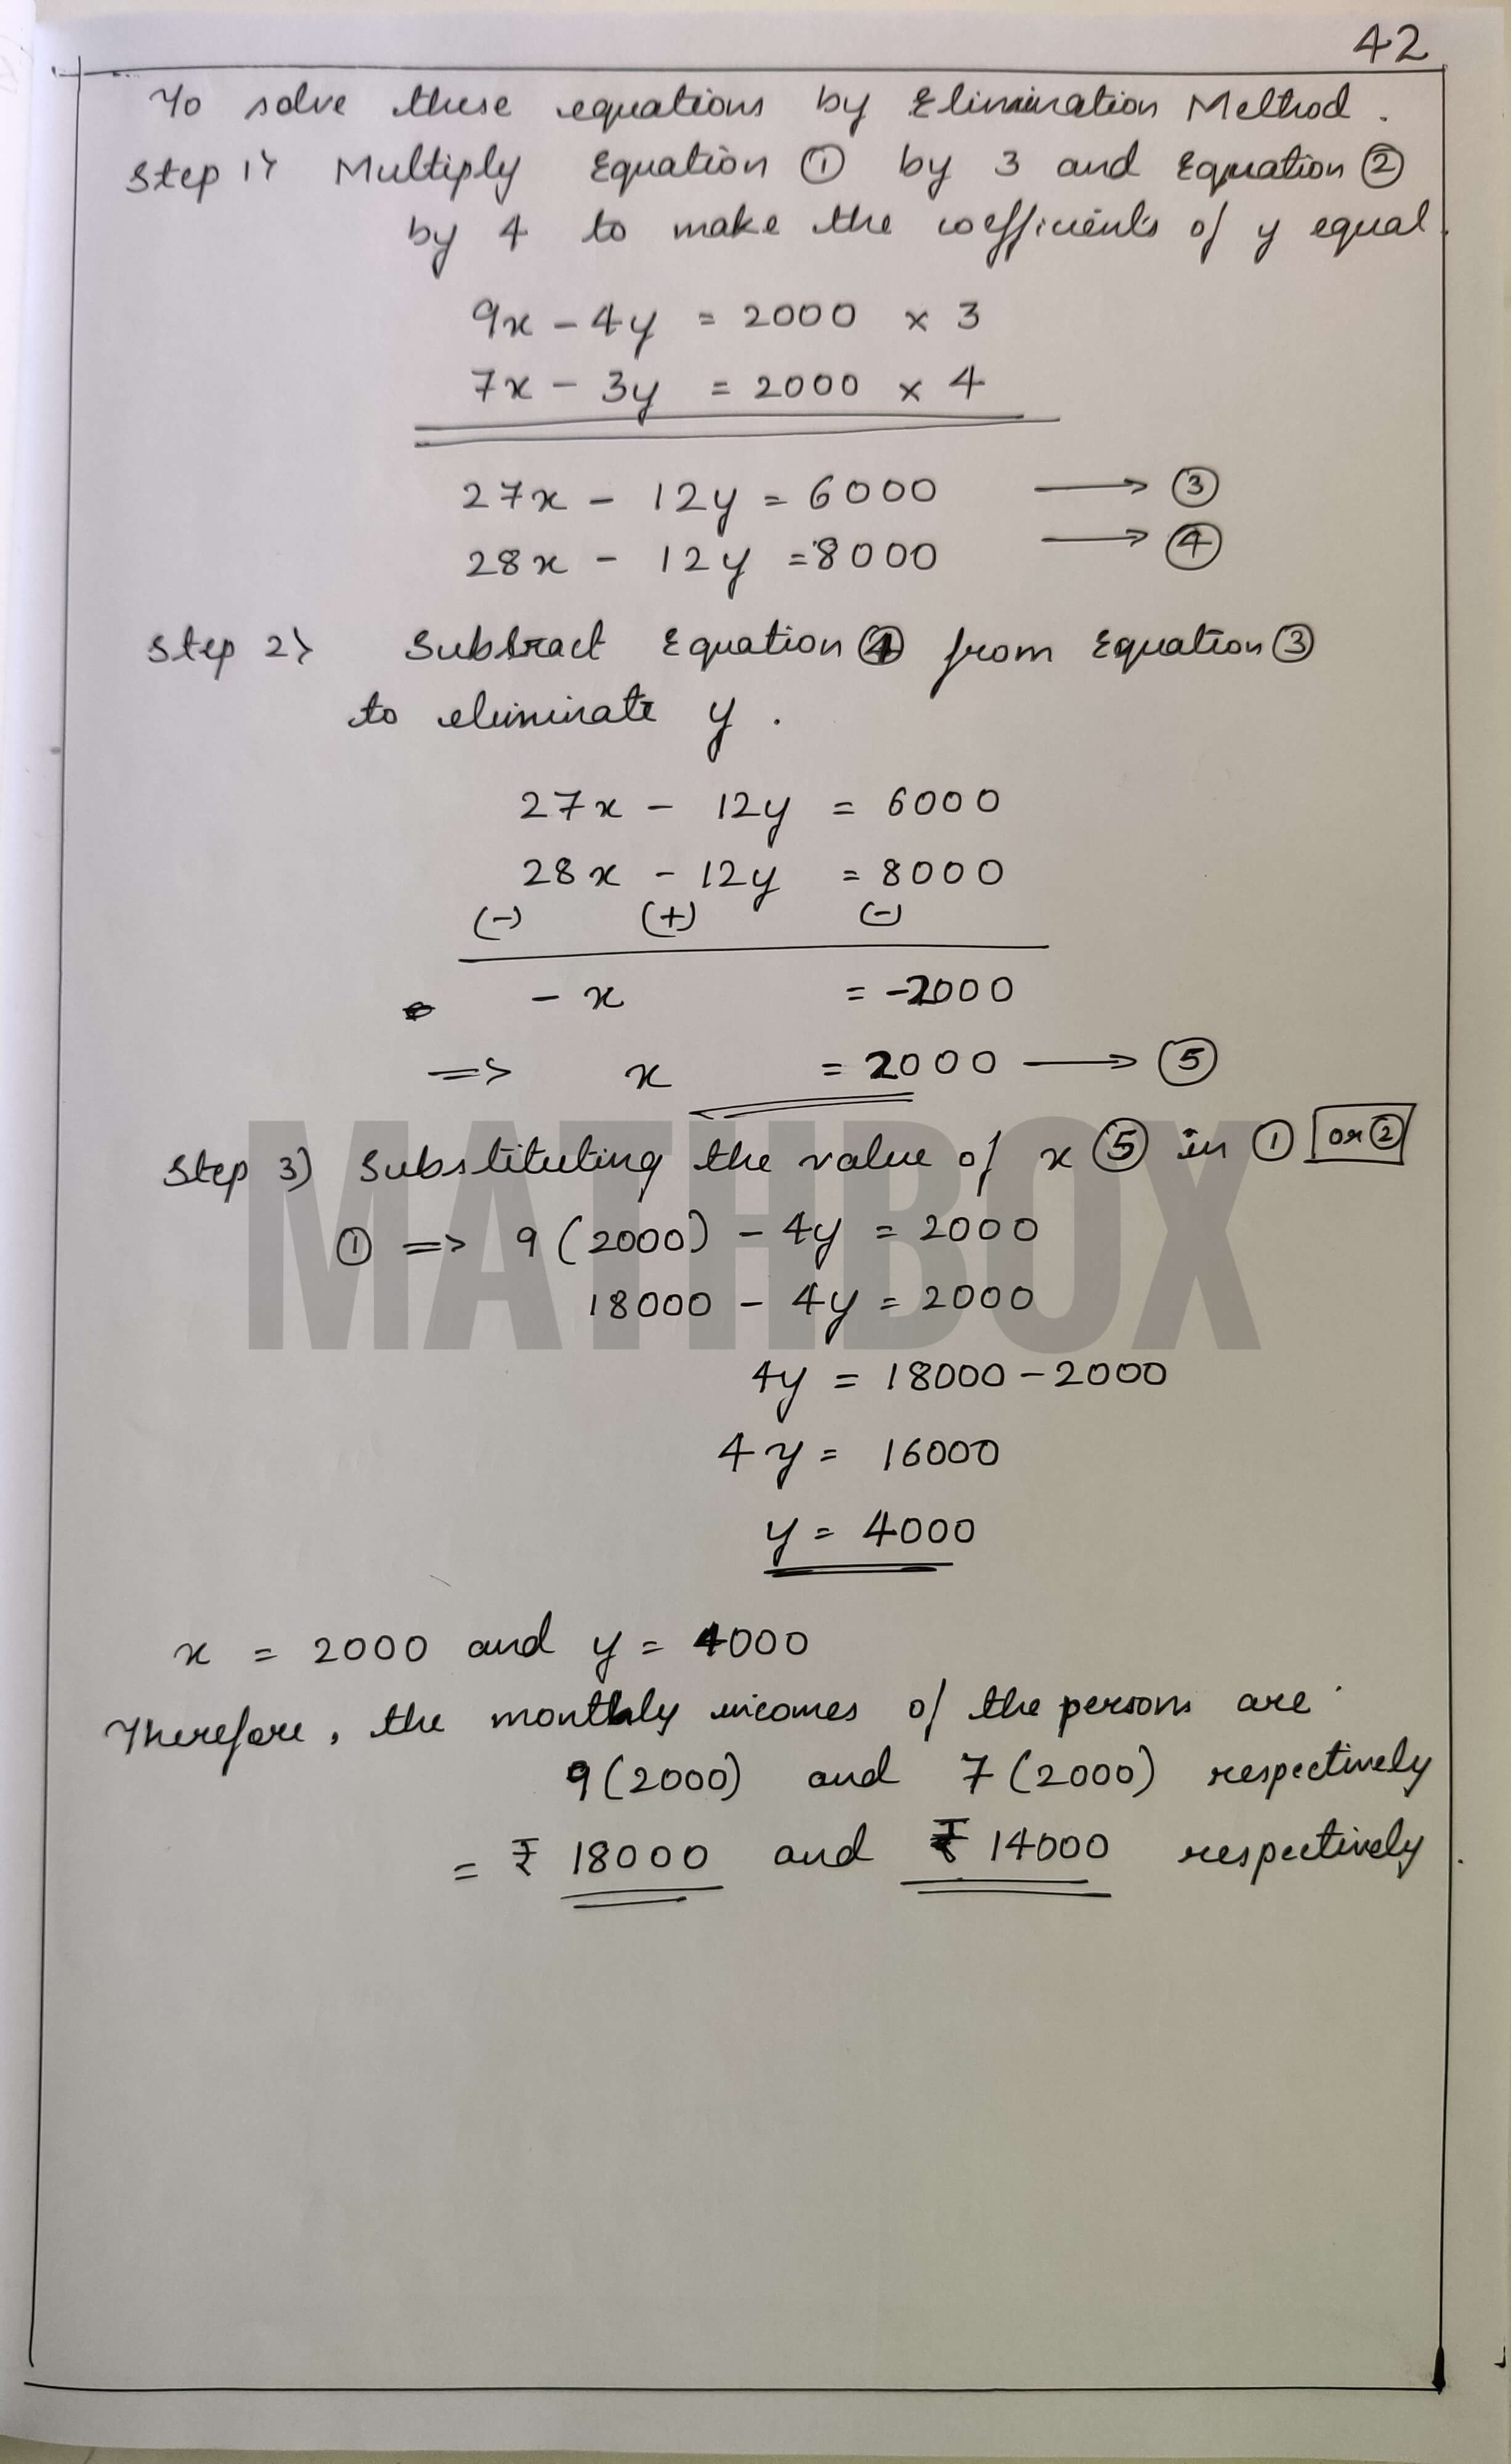 42
To solve these equations by Elimination Method.
Step 1) Multiply Equation ① by 3 and Equation ②
by 4 to make the coefficients of y equal.
9x - 4y = 2000 × 3
7x - 3y = 2000 × 4
27x - 12y = 6000 → ③
28x - 12y = 8000 → ④
Step 2) Subtract Equation ④ from Equation ③
to eliminate y.
27x - 12y = 6000
28x - 12y = 8000
(-) (+) (-)
- x = -2000
=> x = 2000 → ⑤
MATHBOX
Step 3) Substituting the value of x ⑤ in ① or ②
① => 9(2000) - 4y = 2000
18000 - 4y = 2000
4y = 18000 - 2000
4y = 16000
y = 4000
x = 2000 and y = 4000
Therefore, the monthly incomes of the persons are
9(2000) and 7(2000) respectively
= ₹ 18000 and ₹ 14000 respectively.